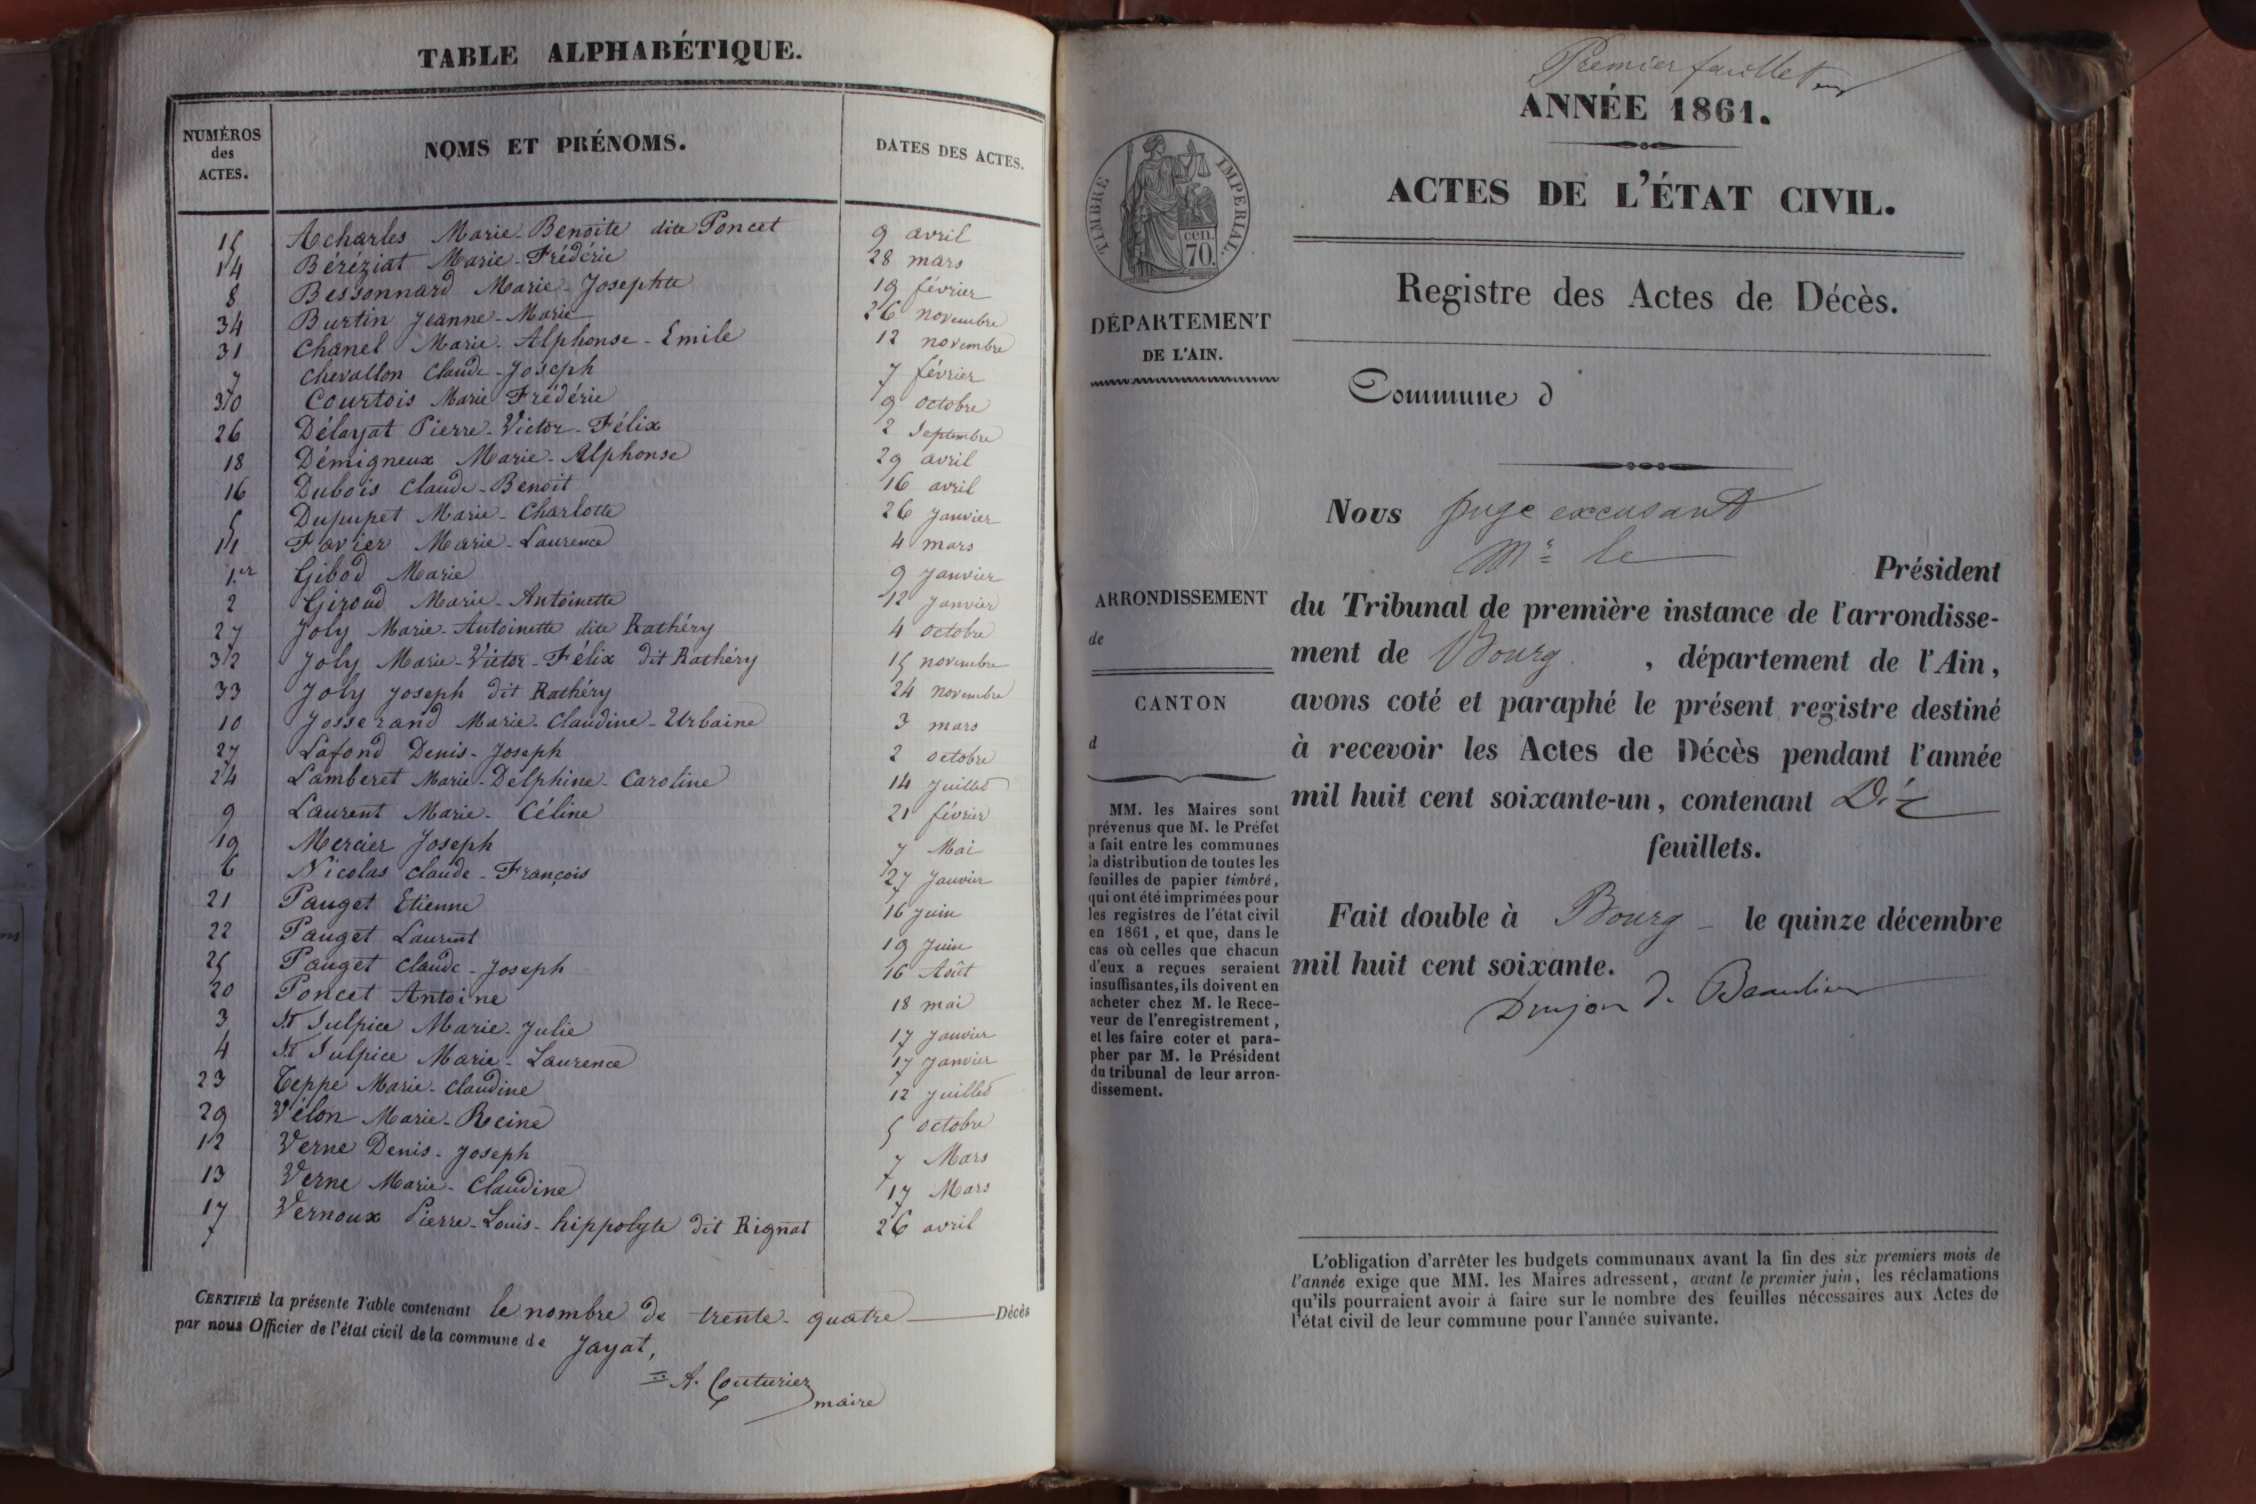 TABLE ALPHABÉTIQUE.
NUMÉROS des ACTES. NOMS ET PRÉNOMS. DATES DES ACTES.
15 Acharles Marie-Benoite dite Poncet 9 avril
14 Béréziat Marie-Frédéric 28 mars
8 Bessonnard Marie-Josephte 19 février
34 Burtin Jeanne-Marie 26 novembre
31 Chanel Marie-Alphonse-Emile 12 novembre
7 Chevallon Claude-Joseph 7 février
30 Courtois Marie Frédéric 9 octobre
26 Délayat Pierre-Victor-Félix 2 Septembre
18 Démigneux Marie-Alphonse 29 avril
16 Dubois Claude-Benoit 16 avril
5 Dupupet Marie-Charlotte 26 Janvier
11 Favier Marie-Laurence 4 mars
1.er Gibod Marie 9 Janvier
2 Giroud Marie-Antoinette 12 Janvier
27 Joly Marie-Antoinette dite Rathéry 4 octobre
32 Joly Marie-Victor-Félix dit Rathéry 15 novembre
33 Joly Joseph dit Rathéry 24 novembre
10 Josserand Marie-Claudine-Urbaine 3 mars
27 Lafond Denis-Joseph 2 octobre
24 Lamberet Marie-Delphine-Caroline 14 Juillet
9 Laurent Marie-Céline 21 février
19 Mercier Joseph 7 Mai
6 Nicolas Claude-François 27 Janvier
21 Pauget Etienne 16 Juin
22 Pauget Laurent 19 Juin
25 Pauget Claude-Joseph 16 Août
20 Poncet Antoine 18 mai
3 St Sulpice Marie-Julie 17 Janvier
4 St Sulpice Marie-Laurence 17 Janvier
23 Teppe Marie-Claudine 12 Juillet
29 Vélon Marie-Reine 5 octobre
12 Verne Denis-Joseph 7 Mars
13 Verne Marie-Claudine 17 Mars
17 Vernoux Pierre-Louis-hippolyte dit Rignat 26 avril
CERTIFIÉ la présente Table contenant le nombre de trente-quatre Décès
par nous Officier de l'état civil de la commune de Jayat,
A. Couturier
maire
Premier feuillet
ANNÉE 1861.
ACTES DE L'ÉTAT CIVIL.
Registre des Actes de Décès.
TIMBRE IMPERIAL.
cen.
70.
DÉPARTEMENT
DE L'AIN.
Commune d
ARRONDISSEMENT
de
CANTON
d
MM. les Maires sont
prévenus que M. le Préfet
a fait entre les communes
la distribution de toutes les
feuilles de papier timbré,
qui ont été imprimées pour
les registres de l'état civil
en 1861, et que, dans le
cas où celles que chacun
d'eux a reçues seraient
insuffisantes, ils doivent en
acheter chez M. le Rece-
veur de l'enregistrement,
et les faire coter et para-
pher par M. le Président
du tribunal de leur arron-
dissement.
Nous Juge excusant
Mr le
Président
du Tribunal de première instance de l'arrondisse-
ment de Bourg, département de l'Ain,
avons coté et paraphé le présent registre destiné
à recevoir les Actes de Décès pendant l'année
mil huit cent soixante-un, contenant Dix
feuillets.
Fait double à Bourg le quinze décembre
mil huit cent soixante.
Drujon de Beaulieu
L'obligation d'arrêter les budgets communaux avant la fin des six premiers mois de
l'année exige que MM. les Maires adressent, avant le premier juin, les réclamations
qu'ils pourraient avoir à faire sur le nombre des feuilles nécessaires aux Actes de
l'état civil de leur commune pour l'année suivante.